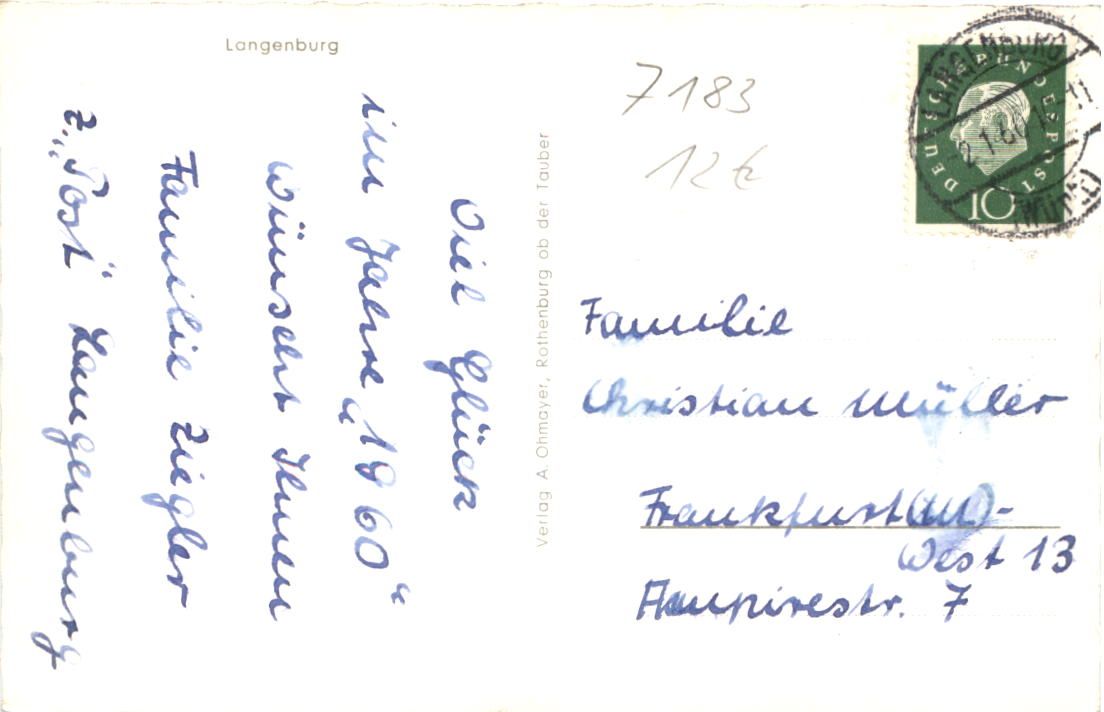 Langenburg
Viel Glück
im Jahre „1960“
wünscht Ihnen
Familie Ziegler
z. „Post“ Langenburg
Verlag A. Ohmayer, Rothenburg ob der Tauber
7183
12 €
DEUTSCHE BUNDESPOST
10
LANGENBURG
(WÜRTT)
Familie
Christian Müller
Frankfurt(M)-
West 13
7